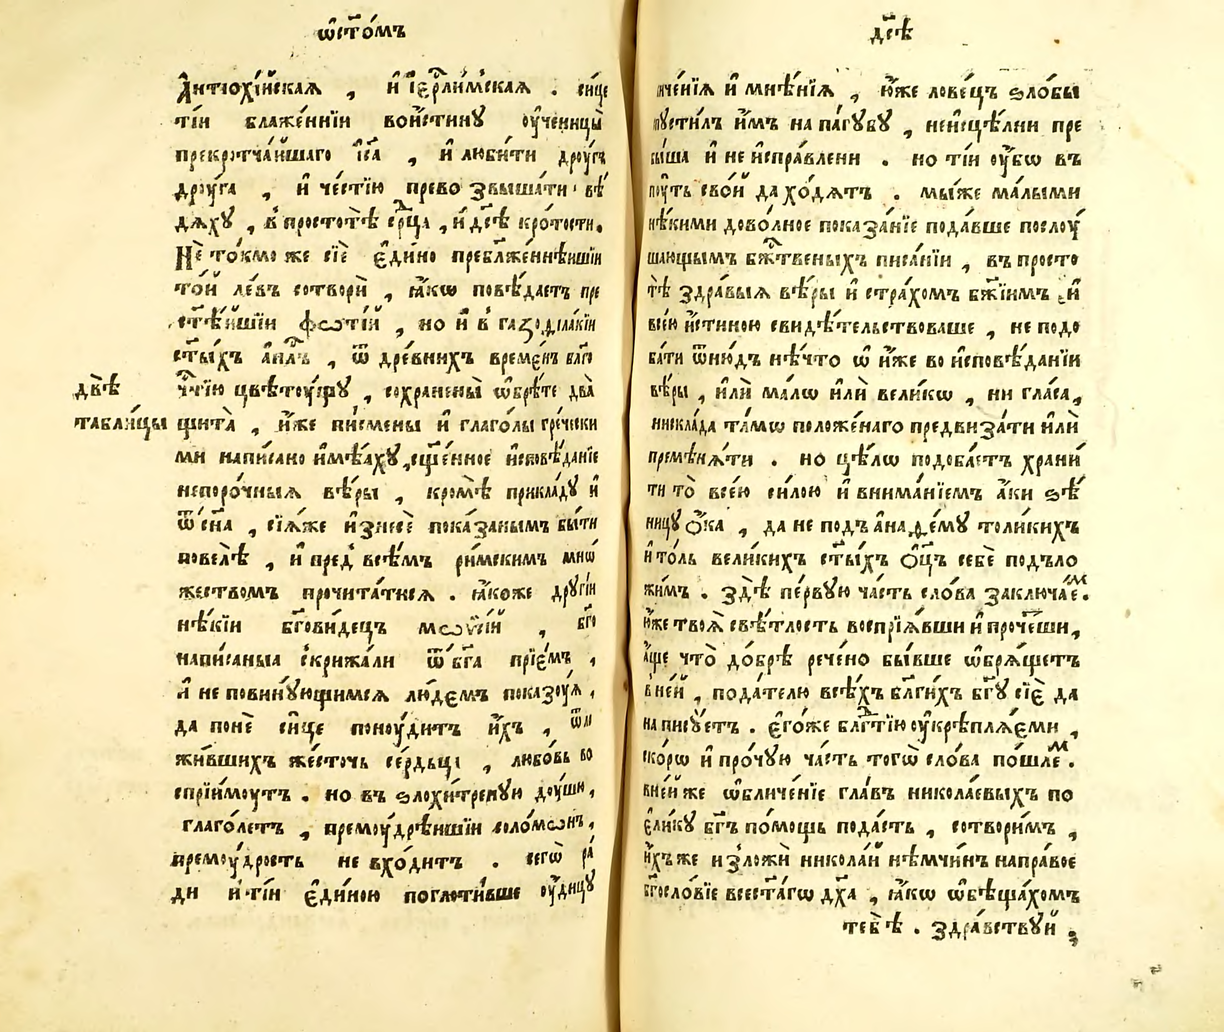 ѡ҆ст҃о́мъ
А҆нтїохі́йскаѧ , и҆ і҆ерⷭ҇ли́мскаѧ . си́це
ті́и блаже́ннїи вои́стинꙋ оу҆чени́цы̀
прекрⷪ҇тча́йшаго і҆и҃са , и҆ люби́ти дрꙋ́гъ
дрꙋ́га , и҆ че́стїю прево звыша́ти · вѣ́
дѧхꙋ , в̾ простотѣ̀ срⷣца , и҆ дс҃ѣ кро́тости .
Не то́кмо же сїѐ є҆ди́но преблаже́ннѣишїи
то́й ле́въ сотворѝ , ꙗ҆́кѡ повѣ́даетъ пре
ст҃ѣ́йшїи фѡті́й , но и҆ в̾ газофѵла́кїи
ст҃ы́хъ а҆пⷭ҇лъ , ѿ дре́внихъ време́нъ блгⷪ҇
чⷭ҇тїю цвѣтꙋ́щꙋ , сохранены̀ ѡ҆брѣ́те два̀
двѣ̀
табли́цы
щита̀ , и҆́же пи́смены и҆ глаго́лы гре́чески
ми напи́сано и҆мѣ́ахꙋ , сщ҃е́нное и҆сповѣ́данїе
непоро́чныѧ вѣ́ры , кромѣ̀ прикла́дꙋ и҆
ѿсѣ́нїѧ , сїѧ́же и҆знесѐ пока́занымъ бы́ти
повелѣ̀ , и҆ пред̾ всѣ́мъ ри́мскимъ мно́
жествомъ прочита́тисѧ . ꙗ҆́коже дрꙋ́гїи
нѣ́кїи бг҃ови́децъ мѡѷсі́й , бг҃о
напи́саныѧ скрижа́ли ѿ бг҃а прїе́мъ ,
и҆ не повинꙋ́ющимсѧ лю́демъ показꙋ́ѧ ,
да понѐ си́це понꙋ́дитъ и҆́хъ , ѿло
жи́вшихъ же́сточь се́рдьца , любо́вь во
спрїи́мꙋтъ . но въ ѕлохи́тренꙋю дꙋ́шꙋ ,
глаго́летъ , премꙋдрѣ́йшїи соломѡ́нъ ,
премꙋ́дрость не вхо́дитъ . сегѡ̀ ра́
ди и҆ ті́и є҆ди́ною поглоти́вше оу҆́дицꙋ
дс҃ѣ
мче́нїѧ и҆ мнѣ́нїѧ , ю҆́же лове́цъ ѕло́бы
пꙋсти́лъ и҆̀мъ на па́гꙋбꙋ , неисцѣ́лни пре
бы́ша и҆ не и҆спра́влени . но ті́и оу҆́бѡ въ
пꙋ́ть сво́й да хо́дѧтъ . мы́же ма́лыми
нѣ́кими дово́лное показа́нїе пода́вше послꙋ́
шающымъ бж҃е́ственыхъ писа́нїи , въ просто
тѣ̀ здра́выѧ вѣ́ры и҆ стра́хомъ бж҃їимъ , и҆
все́ю и҆́стиною свидѣ́тельствоваше , не подо
ба́ти ѿню́дъ нѣ́что ѡ҆ и҆́же во и҆сповѣ́данїи
вѣ́ры , и҆лѝ ма́лѡ и҆лѝ вели́кѡ , ни гла́са ,
нискла́да та́мѡ положе́наго предвиза́ти и҆лѝ
премѣнѧ́ти . но цѣ́лѡ подоба́етъ храни́
ти то̀ все́ю си́лою и҆ внима́нїемъ а҆́ки ѕѣ́
ницꙋ ѻ҆́ка , да не подъ а҆на́ѳемꙋ толи́кихъ
и҆ то́ль вели́кихъ ст҃ы́хъ ѻ҆ц҃ъ себѐ подъло
жи́мъ . здѣ̀ пе́рвꙋю ча́сть сло́ва заключа́емъ .
ю҆́же твоѧ̀ свѣ́тлость воспрїѧ́вши и҆ проче́тши ,
а҆́ще что̀ до́брѣ рече́но бы́вше ѡ҆брѧ́щетъ
в̾не́й , пода́телю всѣ́хъ бл҃ги́хъ бг҃ꙋ сїѐ да
напи́сꙋетъ . є҆го́же блгⷣтїю оу҆крѣплѧ́еми ,
ско́рѡ и҆ про́чꙋю ча́сть тогѡ̀ сло́ва по́шлемъ .
вне́й же ѡ҆бличе́нїе гла́въ никола́евыхъ по
є҆ли́кꙋ бг҃ъ по́мощь пода́стъ , сотвори́мъ ,
и҆́хъже и҆зложѝ никола́й нѣ́мчинъ напра́вое
бг҃осло́вїе всест҃а́гѡ дх҃а , ꙗ҆́кѡ ѡ҆бѣща́хомъ
тебѣ̀ . здра́вствꙋй ;